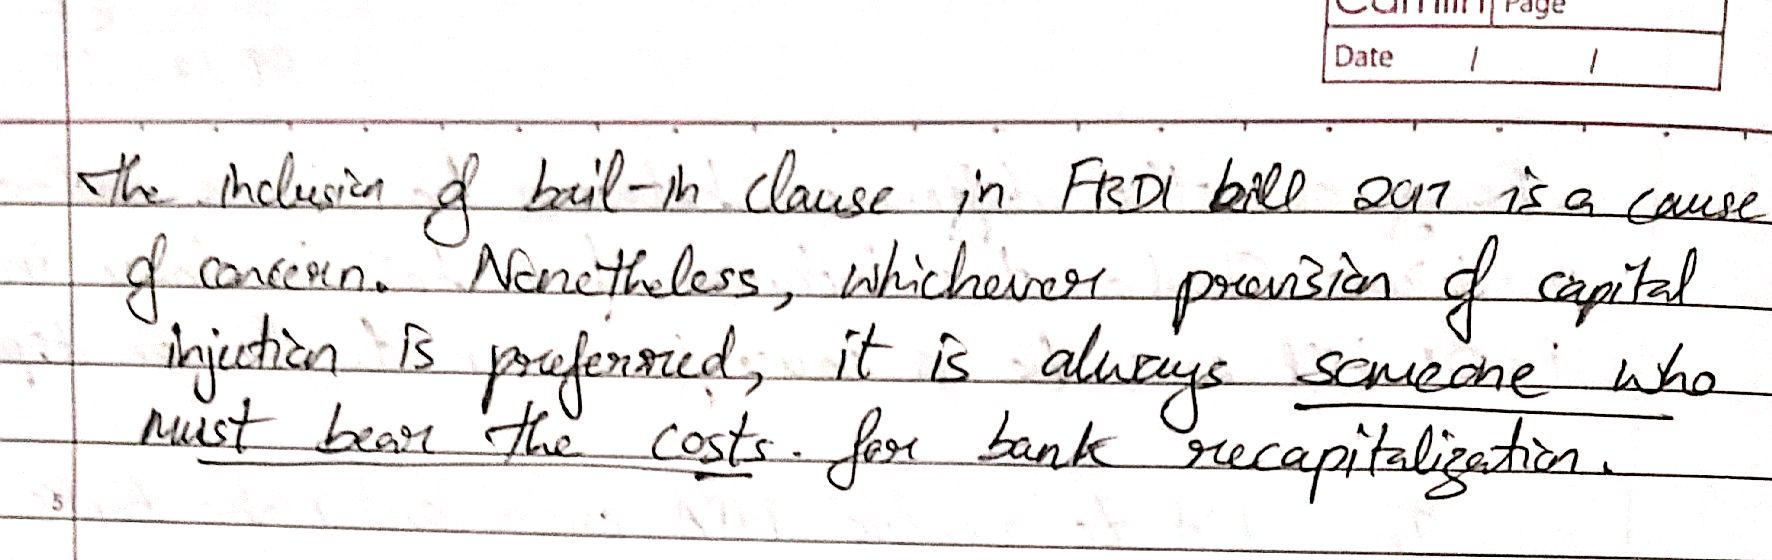 Camlin Page
Date / /
The inclusion of bail-in clause in FRDI bill 2017 is a cause
of concern. Nonetheless, whichever provision of capital
injection is preferred, it is always someone who
must bear the costs. for bank recapitalization.
5